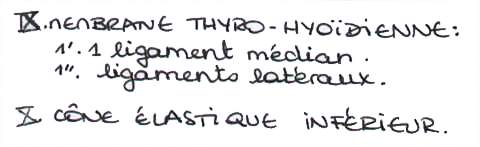 IX. MEMBRANE THYRO-HYOÏDIENNE:
1'. 1 ligament médian.
1". ligaments latéraux.
X. CÔNE ÉLASTIQUE INFÉRIEUR.